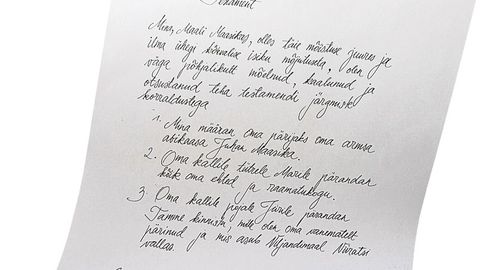 Testament
Mina, Maali Maasikas, olles täie mõistuse juures ja
ilma ühegi kõrvalise isiku mõjutuseta, olen
väga põhjalikult mõelnud, kaalunud ja
otsustanud teha testamendi järgmiste
korraldustega
1. Mina määran oma pärijaks oma armsa
abikaasa Juhan Maasika.
2. Oma kallile tütrele Marile pärandan
kõik oma ehted ja raamatukogu.
3. Oma kallile pojale Jürile pärandan
Tamme kinnistu, mille olen oma vanematelt
pärinud ja mis asub Viljandimaal
vallas.